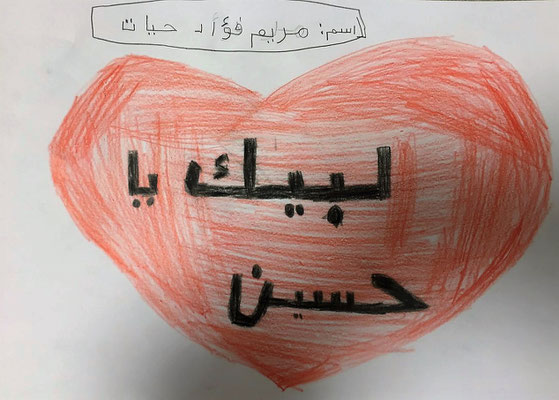 اسم: مريم فؤاد حيات
لبيك يا
حسين